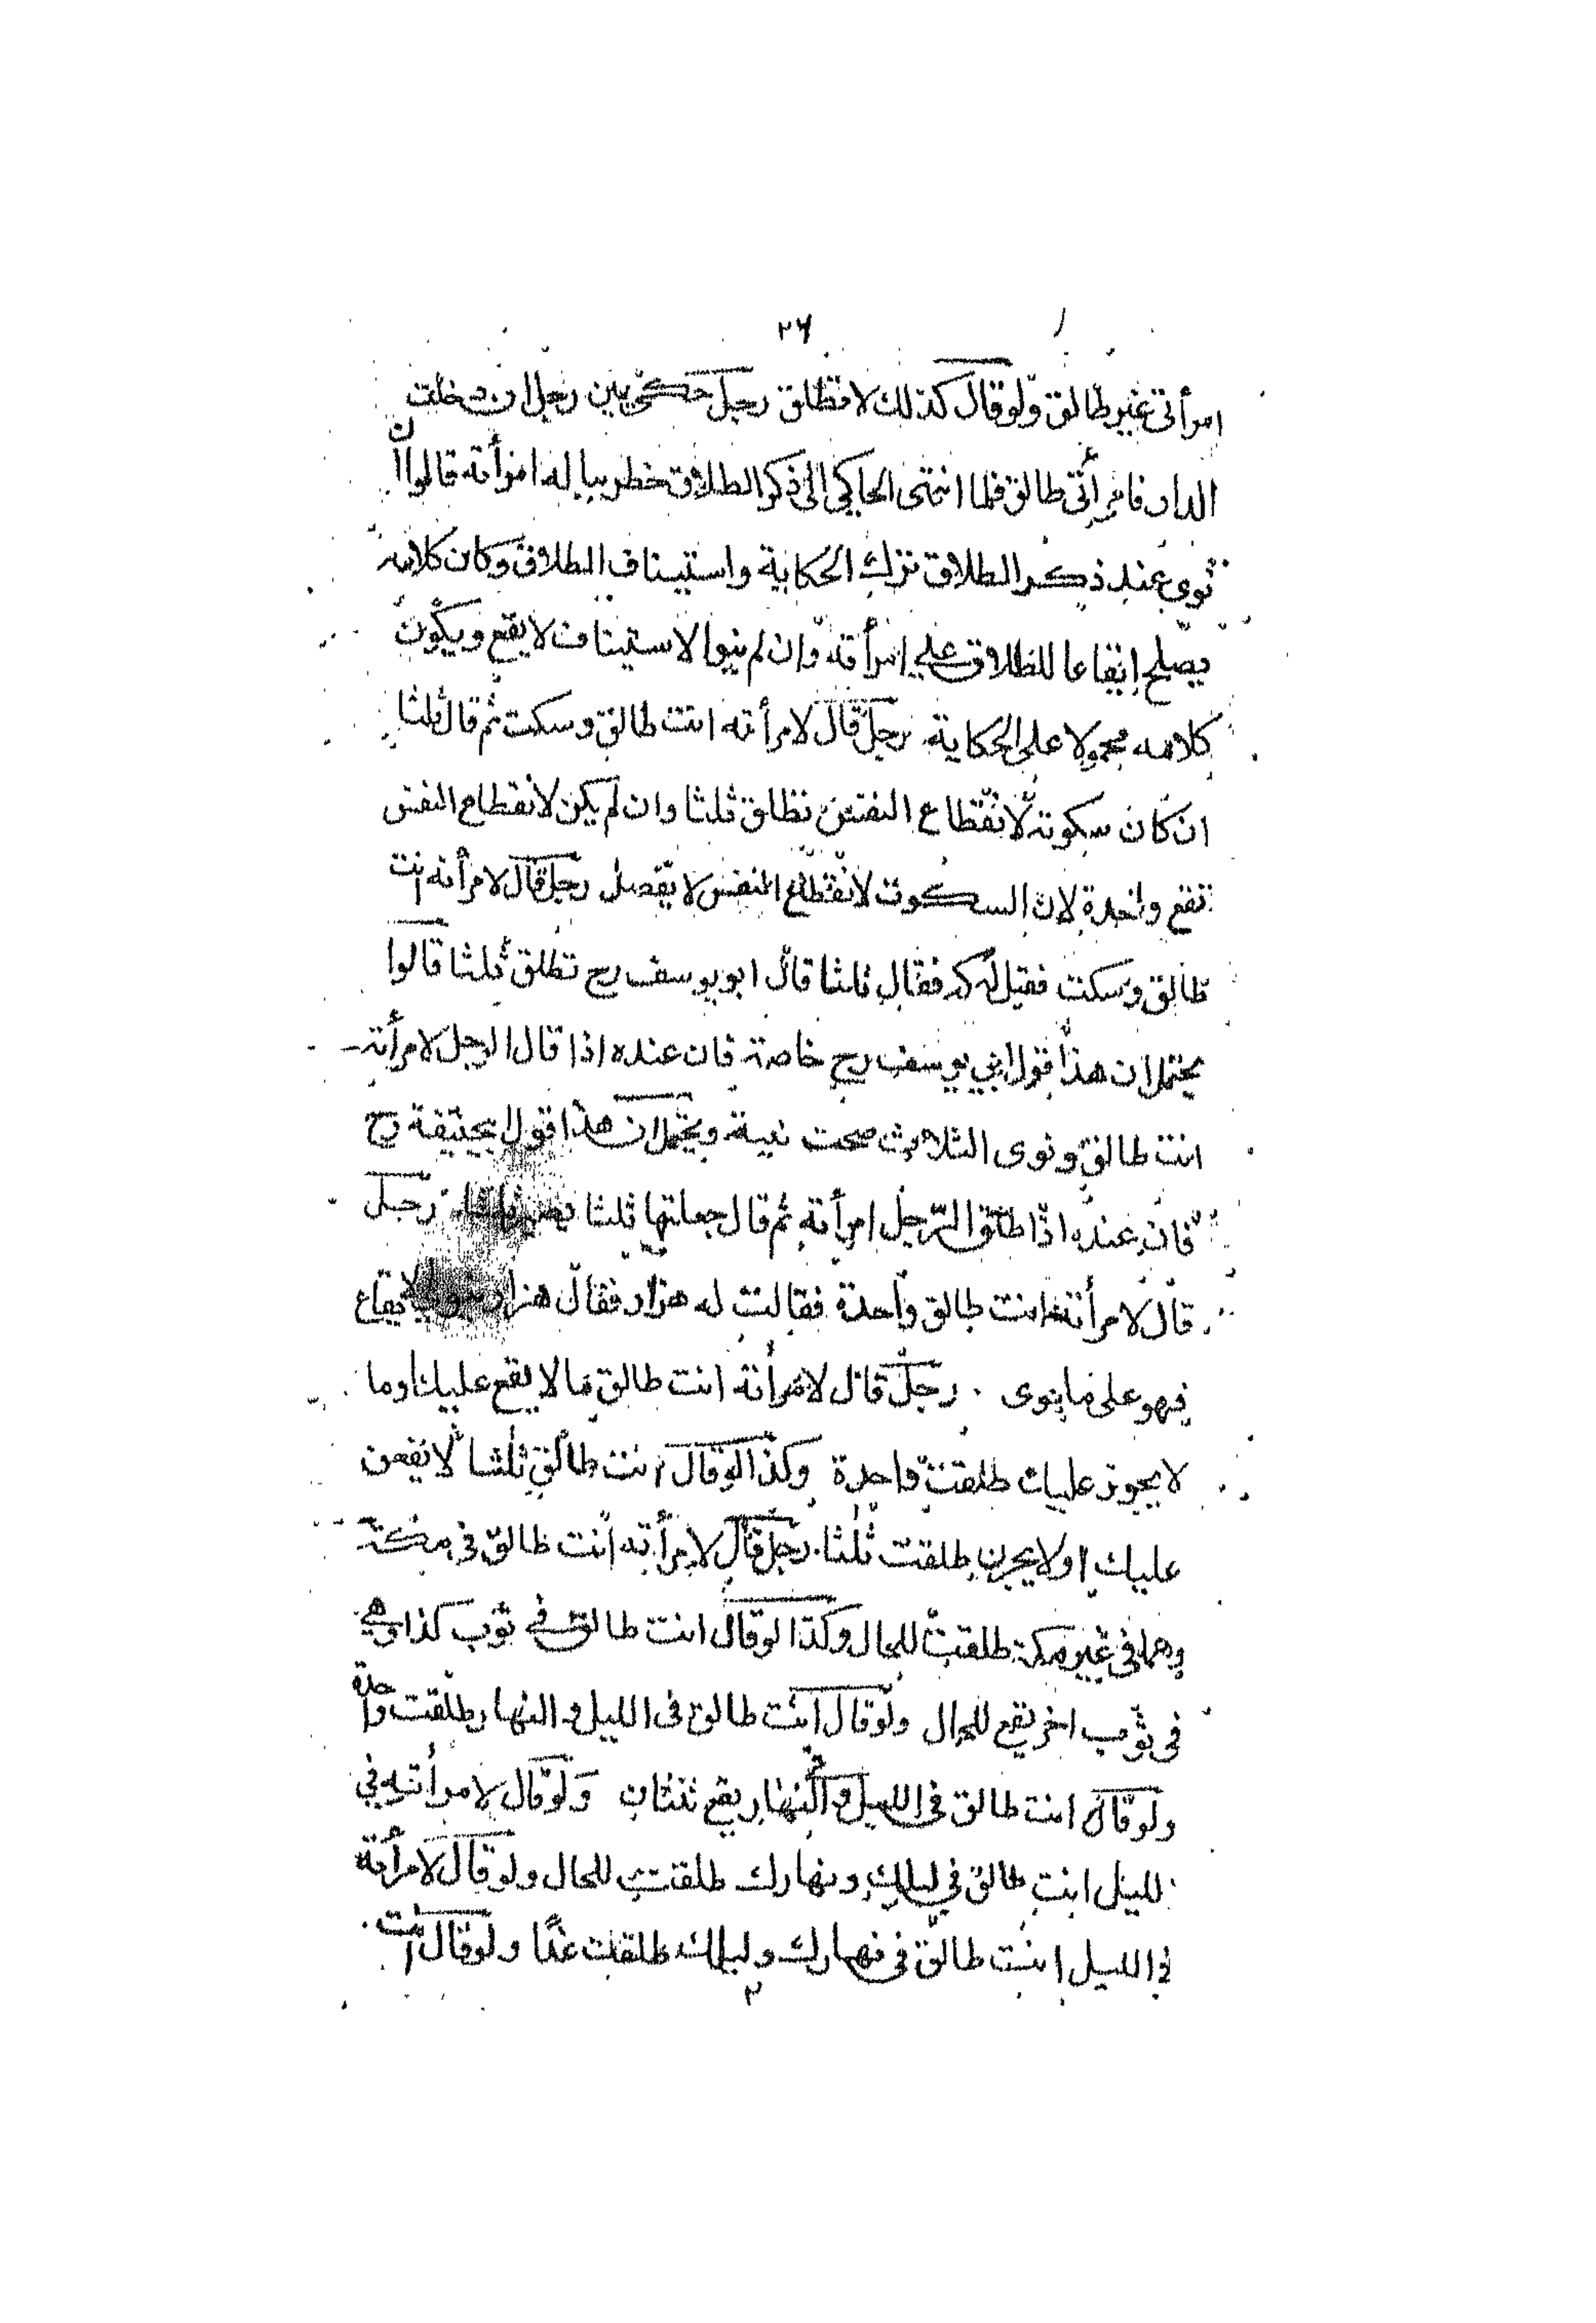 ٢٦
امرأتي غير طالق ولو قال كذلك لا تطلق رجل حكى يمين رجل ان دخلت
الدار فامرأتي طالق فلما انتهى الحاكي الى ذكر الطلاق خطر بباله امرأته قالوا ان
نوى عند ذكر الطلاق ترك الحكاية واستيناف الطلاق وكان كلامه
يصلح ايقاعا للطلاق على امرأته وان لم ينوا الاستيناف لا يقع ويكون
كلامه محمولا على الحكاية رجل قال لامرأته انت طالق وسكت ثم قال ثلثا
ان كان سكوته لانقطاع النفس تطلق ثلثا وان لم يكن لانقطاع النفس
تقع واحدة لان السكوت لانقطاع النفس لا يفصل رجل قال لامرأته انت
طالق وسكت فقيل له كم فقال ثلثا قال ابو يوسف رح تطلق ثلثا قالوا
يحتمل ان هذا قول ابي يوسف رح خاصة فان عنده اذا قال الرجل لامرأته
انت طالق ونوى الثلاث صحت نيته ويحتمل ان هذا قول ابيحنيفة رح
فان عنده اذا طلق الرجل امرأته ثم قال جعلتها ثلثا يصير ثلثا رجل
قال لامرأته انت طالق واحدة فقالت له هزار فقال هزار لايقاع
فهو على ما ينوى . رجل قال لامرأته انت طالق ما لا يقع عليك اوما
لا يجوز عليك طلقت واحدة وكذا لو قال انت طالق ثلثا لا يقعن
عليك او لا يجزن طلقت ثلثا . رجل قال لامرأته انت طالق في مكة
وهما في غير مكة طلقت للحال وكذا لو قال انت طالق في ثوب كذا وهي
في ثوب اخر يقع للحال ولو قال انت طالق في الليل والنهار طلقت واحدة
ولو قال انت طالق في الليل وفي النهار يقع ثنتان ولو قال لامرأته في
الليل انت طالق في ليلك ونهارك طلقت للحال ولو قال لامرأته
في الليل انت طالق في نهارك وليلك طلقت غدا ولو قال انت
٢